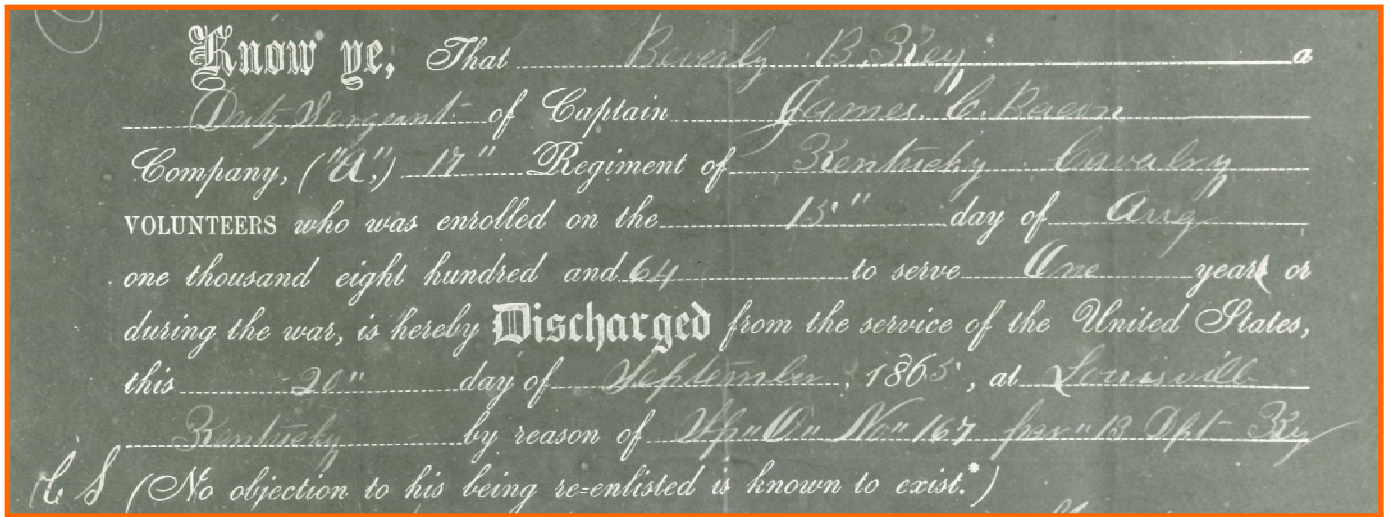 Know ye, That Beverly B. Key a
Duty Sergeant of Captain James. C. Bacon
Company, ("A",) 17" Regiment of Kentucky Cavalry
VOLUNTEERS who was enrolled on the 15" day of Aug
one thousand eight hundred and 64 to serve One year or
during the war, is hereby Discharged from the service of the United States,
this 20" day of September, 1865, at Louisvill
Kentucky by reason of "O" No" 167 Dpt Ky
(No objection to his being re-enlisted is known to exist.*)